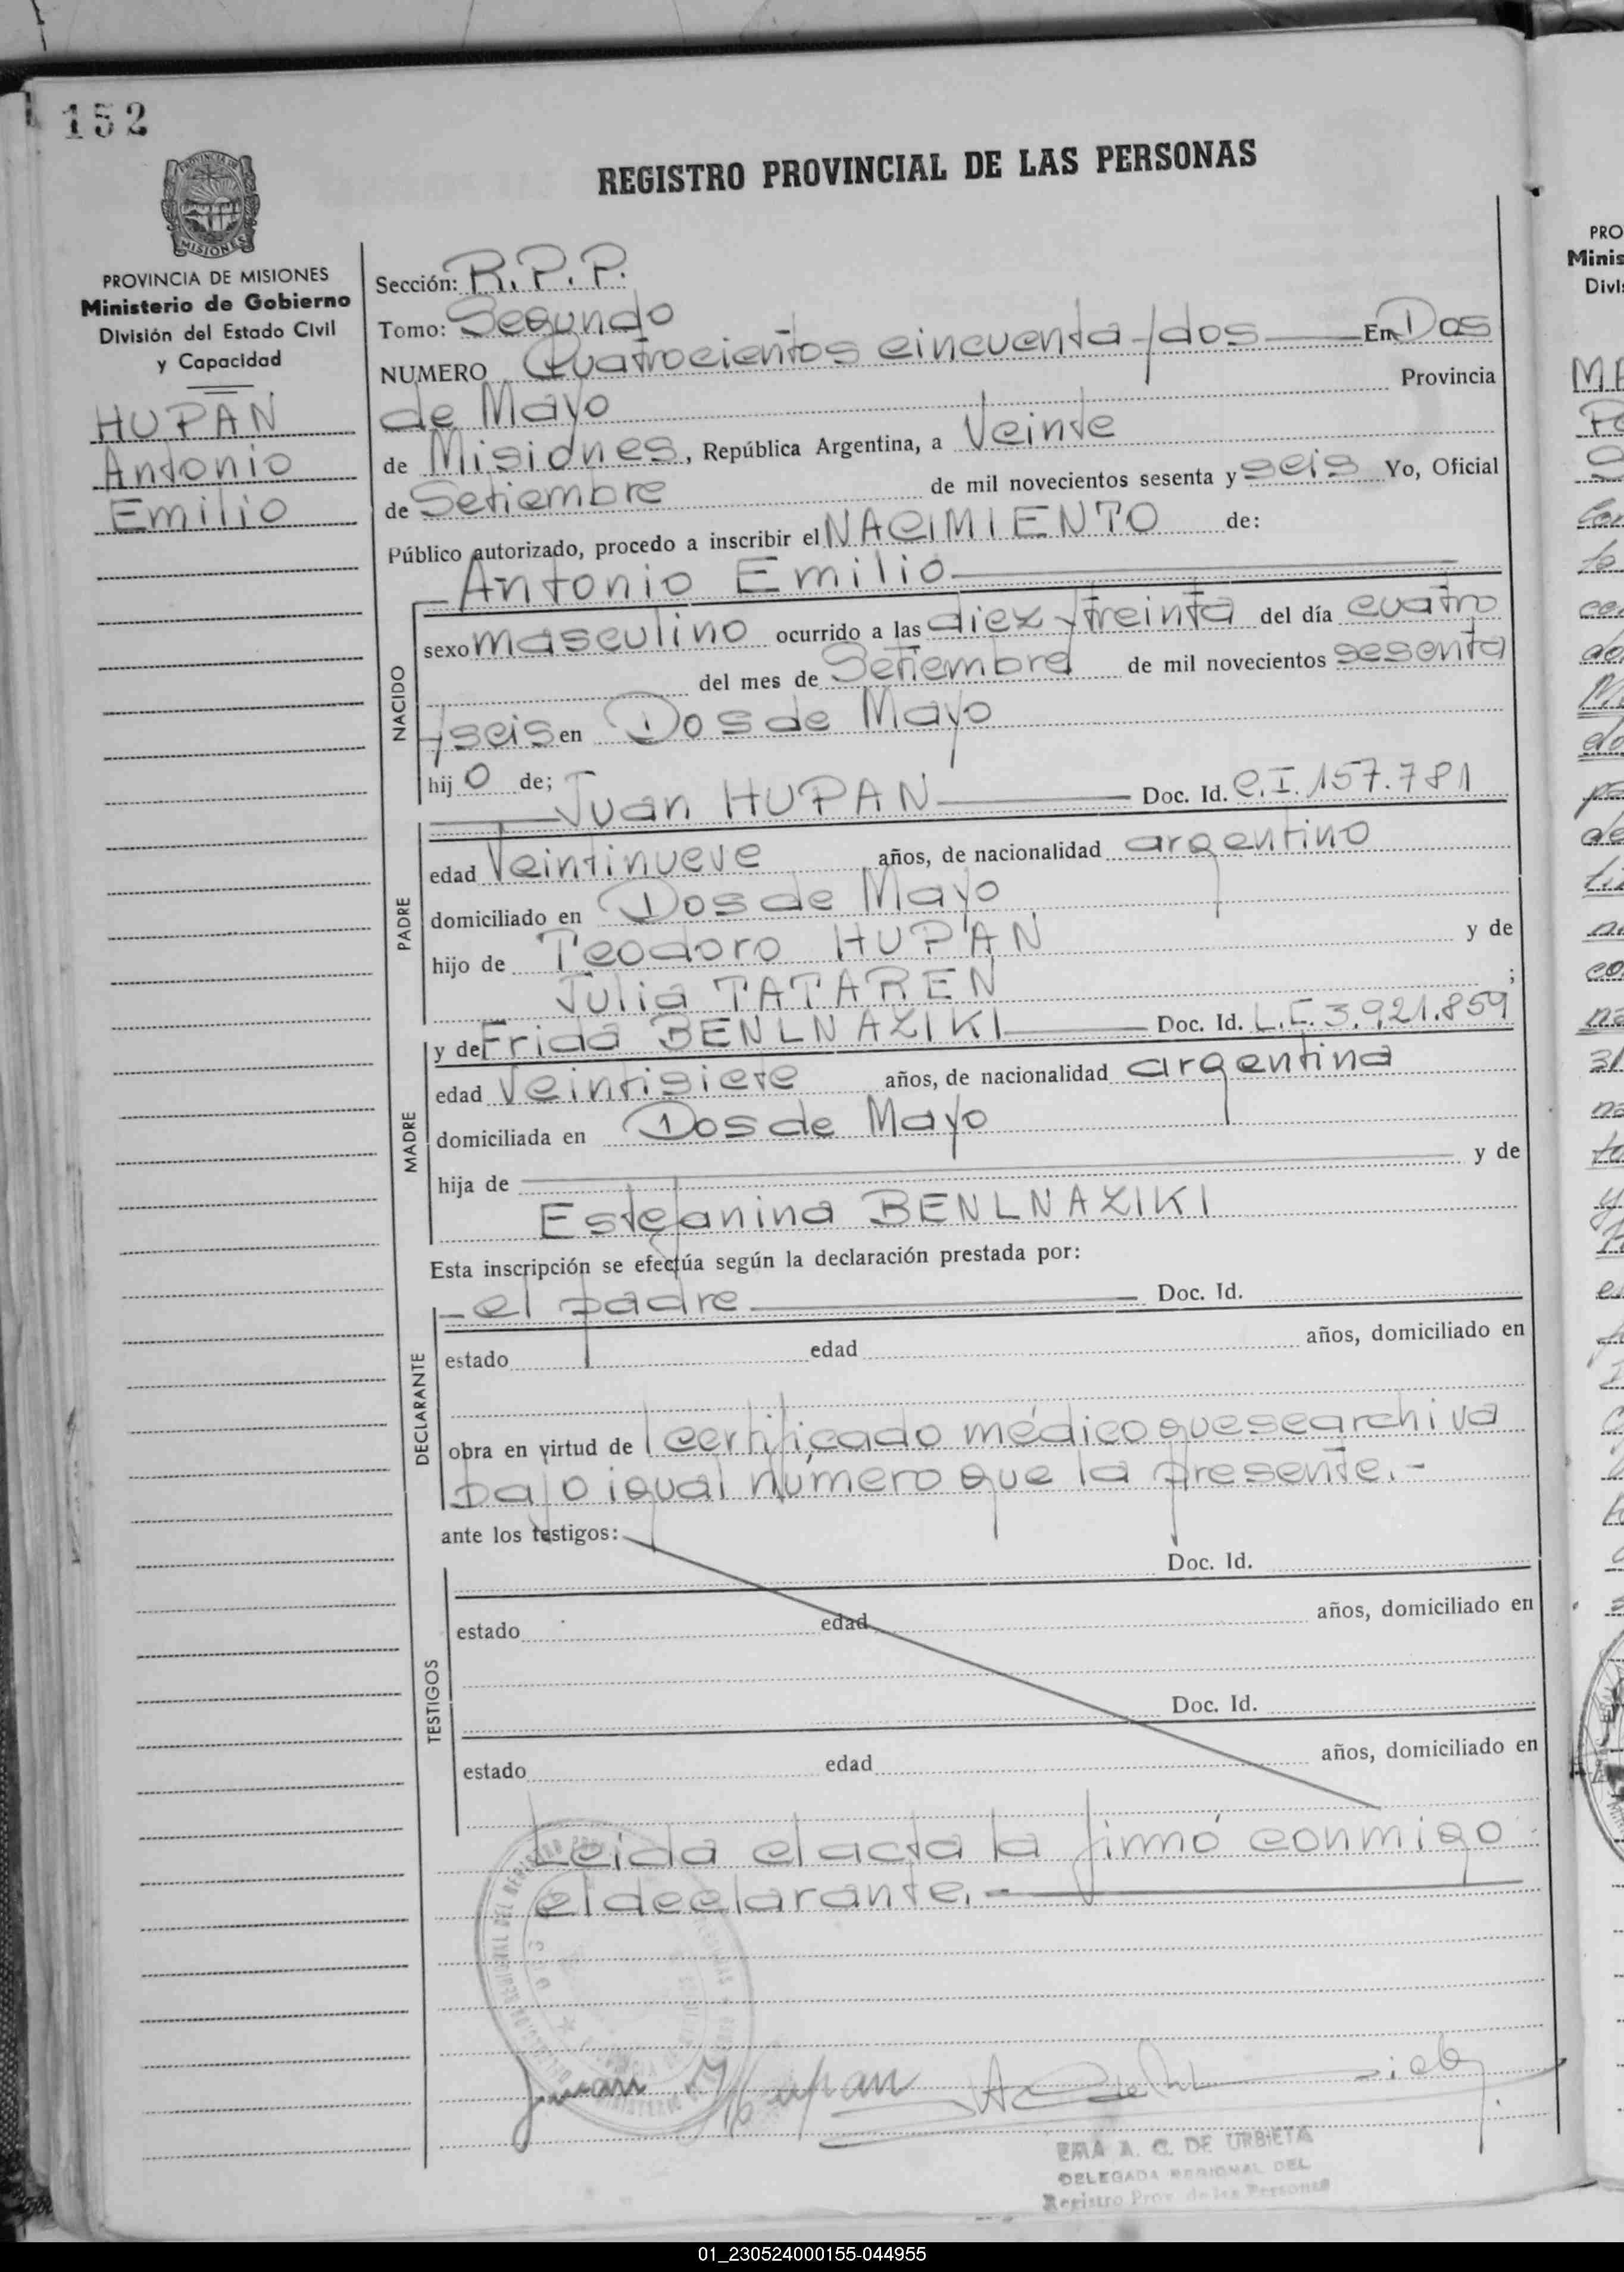 152
REGISTRO PROVINCIAL DE LAS PERSONAS
MISIONES
PROVINCIA DE MISIONES
Ministerio de Gobierno
División del Estado Civil
y Capacidad
HUPAN
Antonio
Emilio
Sección: R.P.P.
Tomo: Segundo
NUMERO Cuatrocientos cincuenta y dos En Dos
de Mayo Provincia
de Misiones, República Argentina, a Veinte
de Setiembre de mil novecientos sesenta y seis Yo, Oficial
Público autorizado, procedo a inscribir el NACIMIENTO de:
Antonio Emilio
NACIDO
sexo masculino ocurrido a las diez y treinta del día cuatro
del mes de Setiembre de mil novecientos sesenta
y seis en Dos de Mayo
hij o de;
Juan HUPAN Doc. Id. C.I. 157.781
PADRE
edad Veintinueve años, de nacionalidad argentino
domiciliado en Dos de Mayo
hijo de Teodoro HUPAN y de
Julia TATAREN ;
y de Frida BENLNAZIKI Doc. Id. L.C. 3.921.859
MADRE
edad Veintisiete años, de nacionalidad argentina
domiciliada en Dos de Mayo
hija de y de
Estefanina BENLNAZIKI
Esta inscripción se efectúa según la declaración prestada por:
el padre Doc. Id.
DECLARANTE
estado edad años, domiciliado en
obra en virtud de l certificado médico que se archiva
bajo igual número que la presente.-
ante los testigos:
Doc. Id.
TESTIGOS
estado edad años, domiciliado en
Doc. Id.
estado edad años, domiciliado en
Leida el acta la firmó conmigo
el declarante.-
Juan Hupan
EMA A. C. DE URBIETA
DELEGADA REGIONAL DEL
Registro Prov. de las Personas
01_230524000155-044955